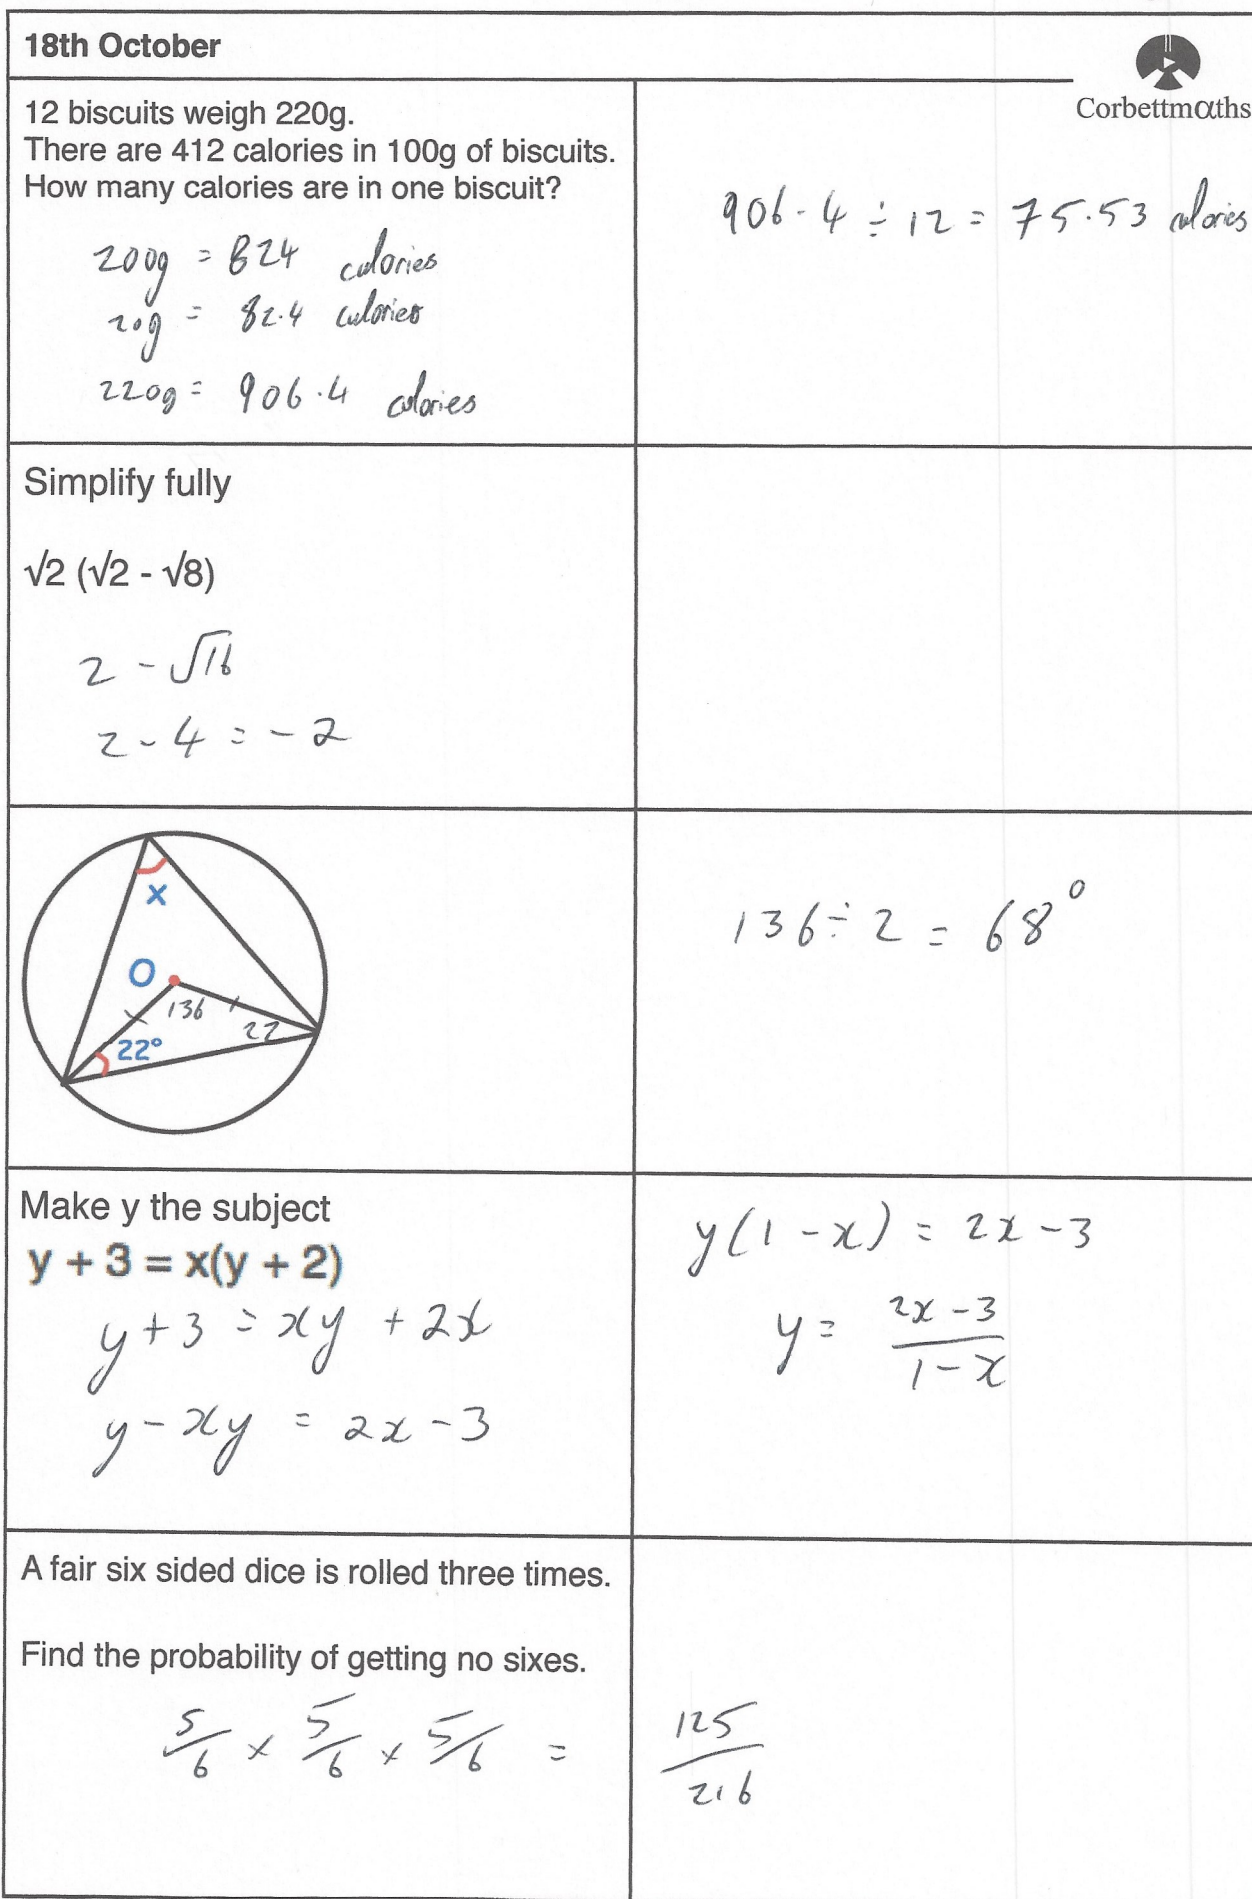 18th October
Corbettmαths
12 biscuits weigh 220g.
There are 412 calories in 100g of biscuits.
How many calories are in one biscuit?
200g = 824 calories
20g = 82.4 calories
220g = 906.4 calories
906.4 ÷ 12 = 75.53 calories
Simplify fully
√2 (√2 - √8)
2 - √16
2 - 4 = -2
x
O
136
22
22°
136 ÷ 2 = 68°
Make y the subject
y + 3 = x(y + 2)
y + 3 = xy + 2x
y - xy = 2x - 3
y(1 - x) = 2x - 3
y = 2x - 3 / 1 - x
A fair six sided dice is rolled three times.
Find the probability of getting no sixes.
5/6 × 5/6 × 5/6 = 125/216